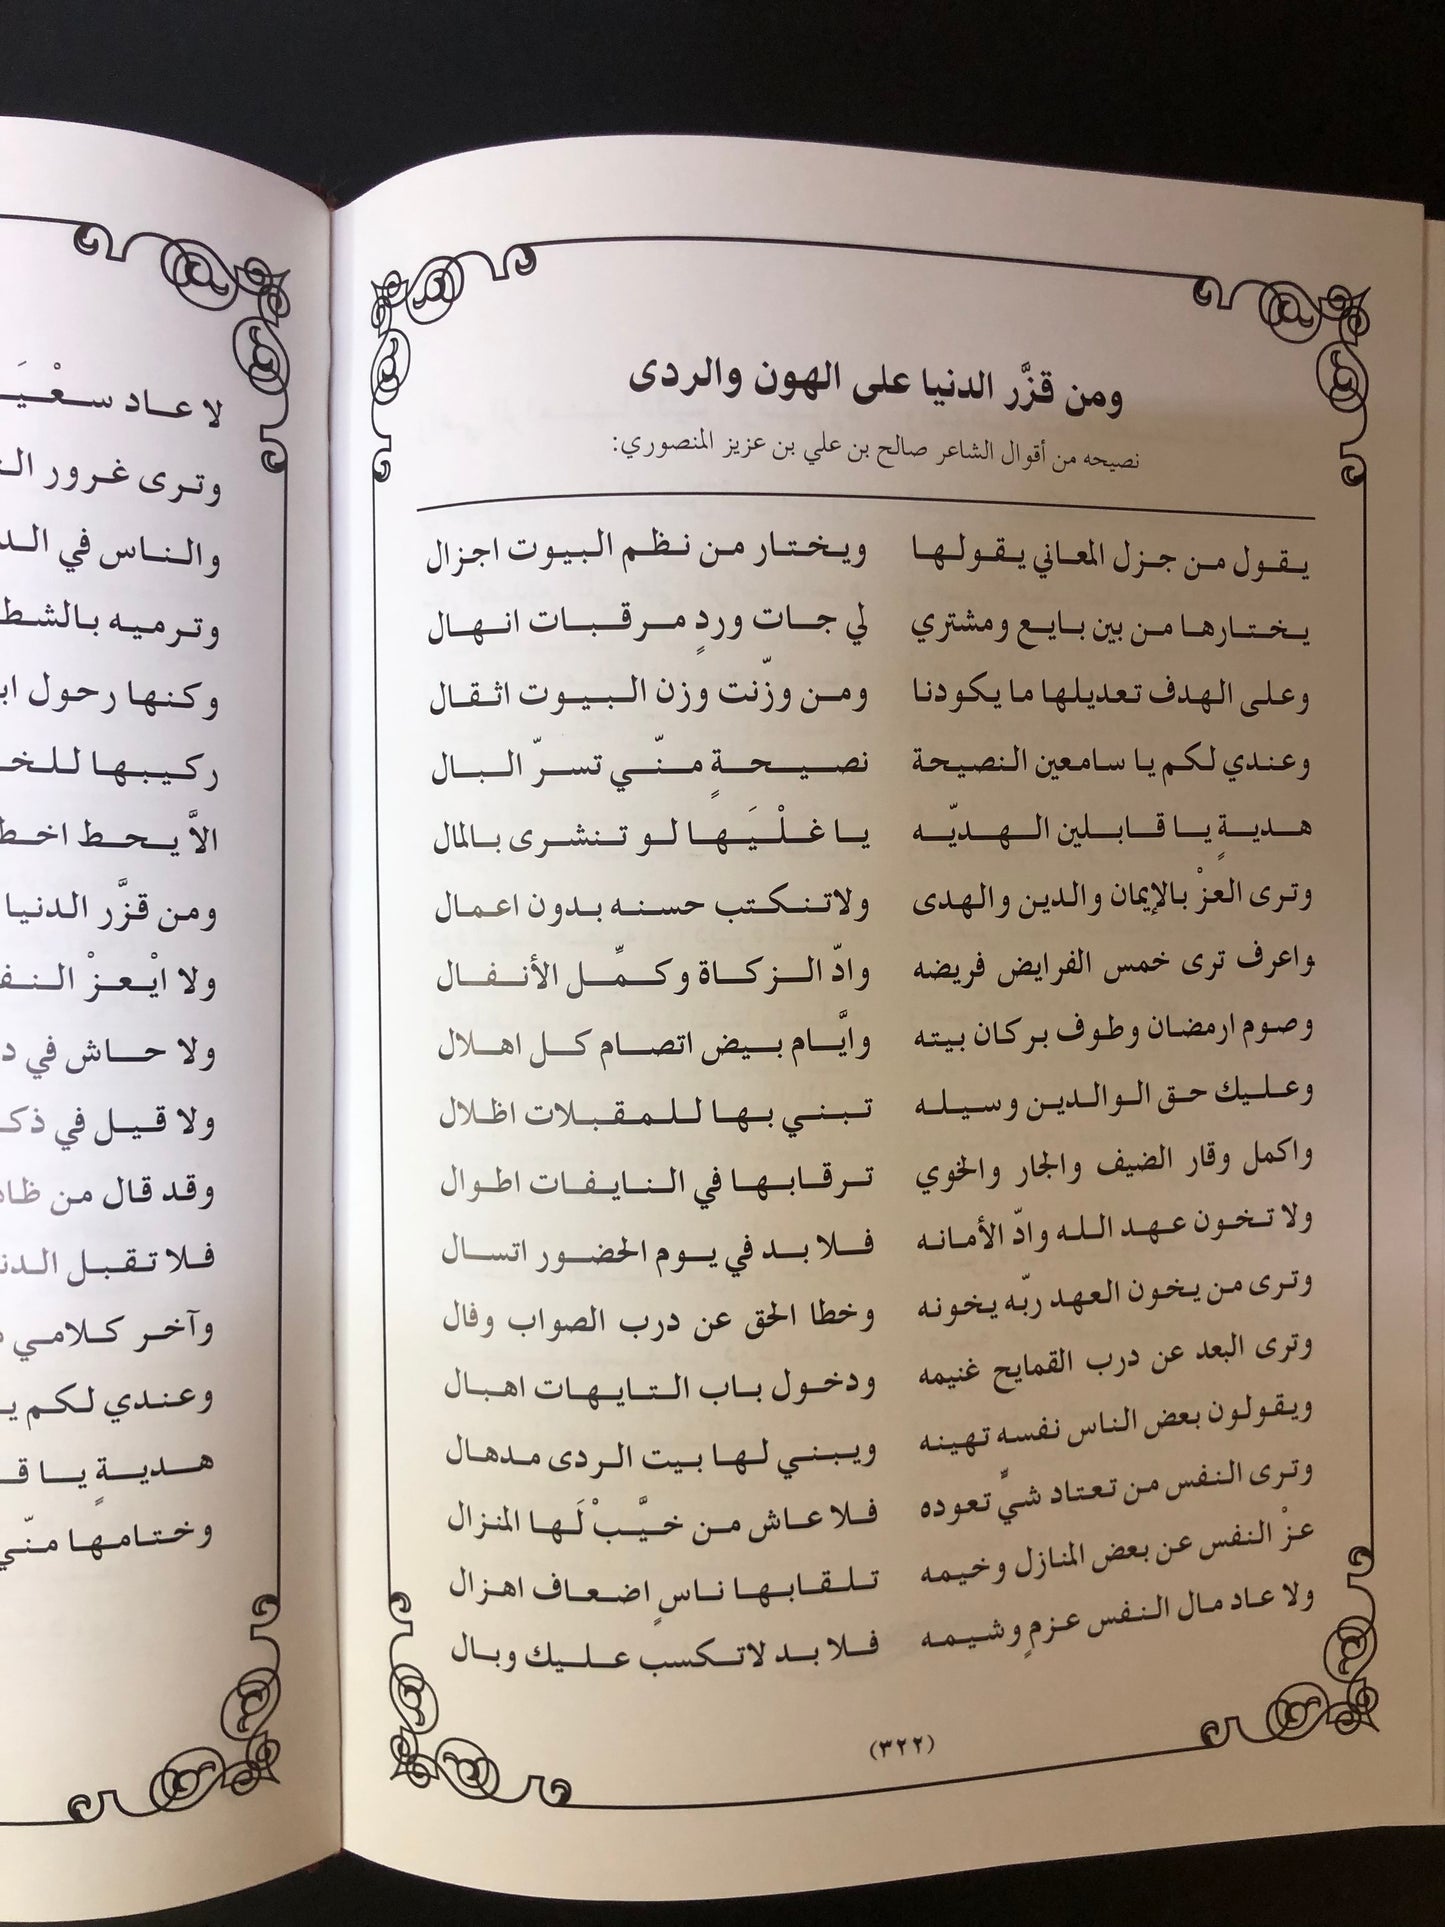 ومن قزَّر الدنيا على الهون والردى
نصيحه من أقوال الشاعر صالح بن علي بن عزيز المنصوري:
يقول من جزل المعاني يقولها ويختار من نظم البيوت اجزال
يختارها من بين بايع ومشتري لي جات وردٍ مرقبات انهال
وعلى الهدف تعديلها ما يكودنا ومن وزّنت وزن البيوت اثقال
وعندي لكم يا سامعين النصيحة نصيحةٍ منّي تسرّ البال
هديةٍ يا قابلين الهديّه يا غلْيَها لو تنشرى بالمال
وترى العزْ بالإيمان والدين والهدى ولاتنكتب حسنه بدون اعمال
واعرف ترى خمس الفرايض فريضه وادّ الزكاة وكمِّل الأنفال
وصوم ارمضان وطوف بركان بيته وايَّام بيض اتصام كل اهلال
وعليك حق الوالدين وسيله تبني بها للمقبلات اظلال
واكمل وقار الضيف والجار والخوي ترقابها في النايفات اطوال
ولا تخون عهد الله وادّ الأمانه فلا بد في يوم الحضور اتسال
وترى من يخون العهد ربّه يخونه وخطا الحق عن درب الصواب وفال
وترى البعد عن درب القمايح غنيمه ودخول باب التايهات اهبال
ويقولون بعض الناس نفسه تهينه ويبني لها بيت الردى مدهال
وترى النفس من تعتاد شيٍّ تعوده فلا عاش من خيَّبْ لَها المنزال
عزْ النفس عن بعض المنازل وخيمه تلقابها ناسٍ اضعاف اهزال
ولا عاد مال النفس عزمٍ وشيمه فلا بد لاتكسب عليك وبال
(٣٢٢)
لا عاد
وترى غرور
والناس في
وترميه بالشط
وكنها رحول
ركيبها
الاَّ يحط
ومن قزَّر الدنيا
ولا ايْعزْ
ولا حاش في
ولا قيل في
وقد قال من
فلا تقبل
وآخر كلامي
وعندي لكم
هديةٍ يا
وختامها منّي